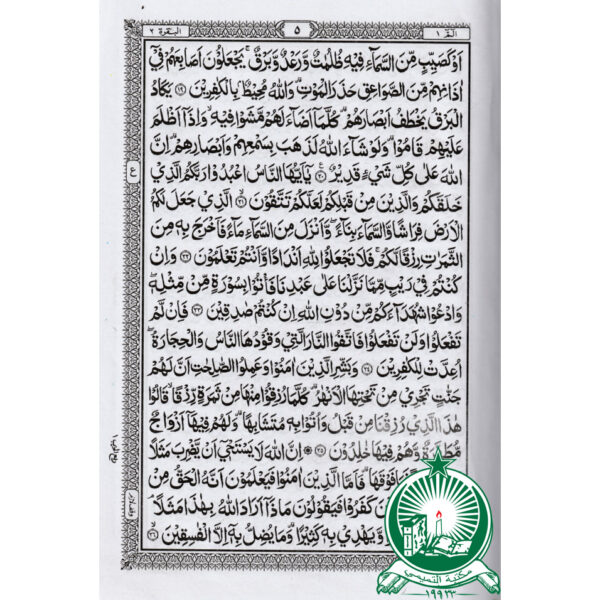 البقرة ٢
٥
الٓمّٓ ١
اَوْ كَصَيِّبٍ مِّنَ السَّمَآءِ فِيْهِ ظُلُمٰتٌ وَّرَعْدٌ وَّبَرْقٌ ۚ يَجْعَلُوْنَ اَصَابِعَهُمْ فِيْٓ
اٰذَانِهِمْ مِّنَ الصَّوَاعِقِ حَذَرَ الْمَوْتِ ؕ وَاللّٰهُ مُحِيْطٌۢ بِالْكٰفِرِيْنَ ﴿١٩﴾ يَكَادُ
الْبَرْقُ يَخْطَفُ اَبْصَارَهُمْ ؕ كُلَّمَآ اَضَآءَ لَهُمْ مَّشَوْا فِيْهِ ۙ وَاِذَآ اَظْلَمَ
عَلَيْهِمْ قَامُوْا ؕ وَلَوْ شَآءَ اللّٰهُ لَذَهَبَ بِسَمْعِهِمْ وَاَبْصَارِهِمْ ؕ اِنَّ
اللّٰهَ عَلٰى كُلِّ شَيْءٍ قَدِيْرٌ ﴿٢٠﴾ يٰٓاَيُّهَا النَّاسُ اعْبُدُوْا رَبَّكُمُ الَّذِيْ
خَلَقَكُمْ وَالَّذِيْنَ مِنْ قَبْلِكُمْ لَعَلَّكُمْ تَتَّقُوْنَ ﴿٢١﴾ الَّذِيْ جَعَلَ لَكُمُ
الْاَرْضَ فِرَاشًا وَّالسَّمَآءَ بِنَآءً ۪ وَّاَنْزَلَ مِنَ السَّمَآءِ مَآءً فَاَخْرَجَ بِهٖ مِنَ
الثَّمَرٰتِ رِزْقًا لَّكُمْ ۚ فَلَا تَجْعَلُوْا لِلّٰهِ اَنْدَادًا وَّاَنْتُمْ تَعْلَمُوْنَ ﴿٢٢﴾ وَاِنْ
كُنْتُمْ فِيْ رَيْبٍ مِّمَّا نَزَّلْنَا عَلٰى عَبْدِنَا فَاْتُوْا بِسُوْرَةٍ مِّنْ مِّثْلِهٖ ۪
وَادْعُوْا شُهَدَآءَكُمْ مِّنْ دُوْنِ اللّٰهِ اِنْ كُنْتُمْ صٰدِقِيْنَ ﴿٢٣﴾ فَاِنْ لَّمْ
تَفْعَلُوْا وَلَنْ تَفْعَلُوْا فَاتَّقُوا النَّارَ الَّتِيْ وَقُوْدُهَا النَّاسُ وَالْحِجَارَةُ ۖ
اُعِدَّتْ لِلْكٰفِرِيْنَ ﴿٢٤﴾ وَبَشِّرِ الَّذِيْنَ اٰمَنُوْا وَعَمِلُوا الصّٰلِحٰتِ اَنَّ لَهُمْ
جَنّٰتٍ تَجْرِيْ مِنْ تَحْتِهَا الْاَنْهٰرُ ؕ كُلَّمَا رُزِقُوْا مِنْهَا مِنْ ثَمَرَةٍ رِّزْقًا ۙ قَالُوْا
هٰذَا الَّذِيْ رُزِقْنَا مِنْ قَبْلُ ۙ وَاُتُوْا بِهٖ مُتَشَابِهًا ؕ وَلَهُمْ فِيْهَآ اَزْوَاجٌ
مُّطَهَّرَةٌ ۙ وَّهُمْ فِيْهَا خٰلِدُوْنَ ﴿٢٥﴾ اِنَّ اللّٰهَ لَا يَسْتَحْيٖٓ اَنْ يَّضْرِبَ مَثَلًا
فَمَا فَوْقَهَا ؕ فَاَمَّا الَّذِيْنَ اٰمَنُوْا فَيَعْلَمُوْنَ اَنَّهُ الْحَقُّ مِنْ
كَفَرُوْا فَيَقُوْلُوْنَ مَاذَآ اَرَادَ اللّٰهُ بِهٰذَا مَثَلًا ۘ
وَّيَهْدِيْ بِهٖ كَثِيْرًا ؕ وَمَا يُضِلُّ بِهٖٓ اِلَّا الْفٰسِقِيْنَ ﴿٢٦﴾
ع
مكتبة التميمي
١٩٩٢٣